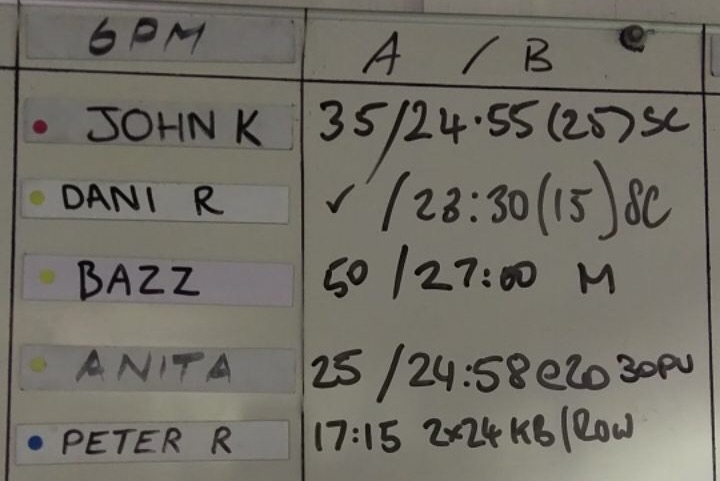 6PM A / B
JOHN K 35/24.55 (25) SC
DANI R ✓ /23:30 (15) SC
BAZZ 50 /27:00 M
ANITA 25 /24:58 @20 30PU
PETER R 17:15 2x24 KB/ROW